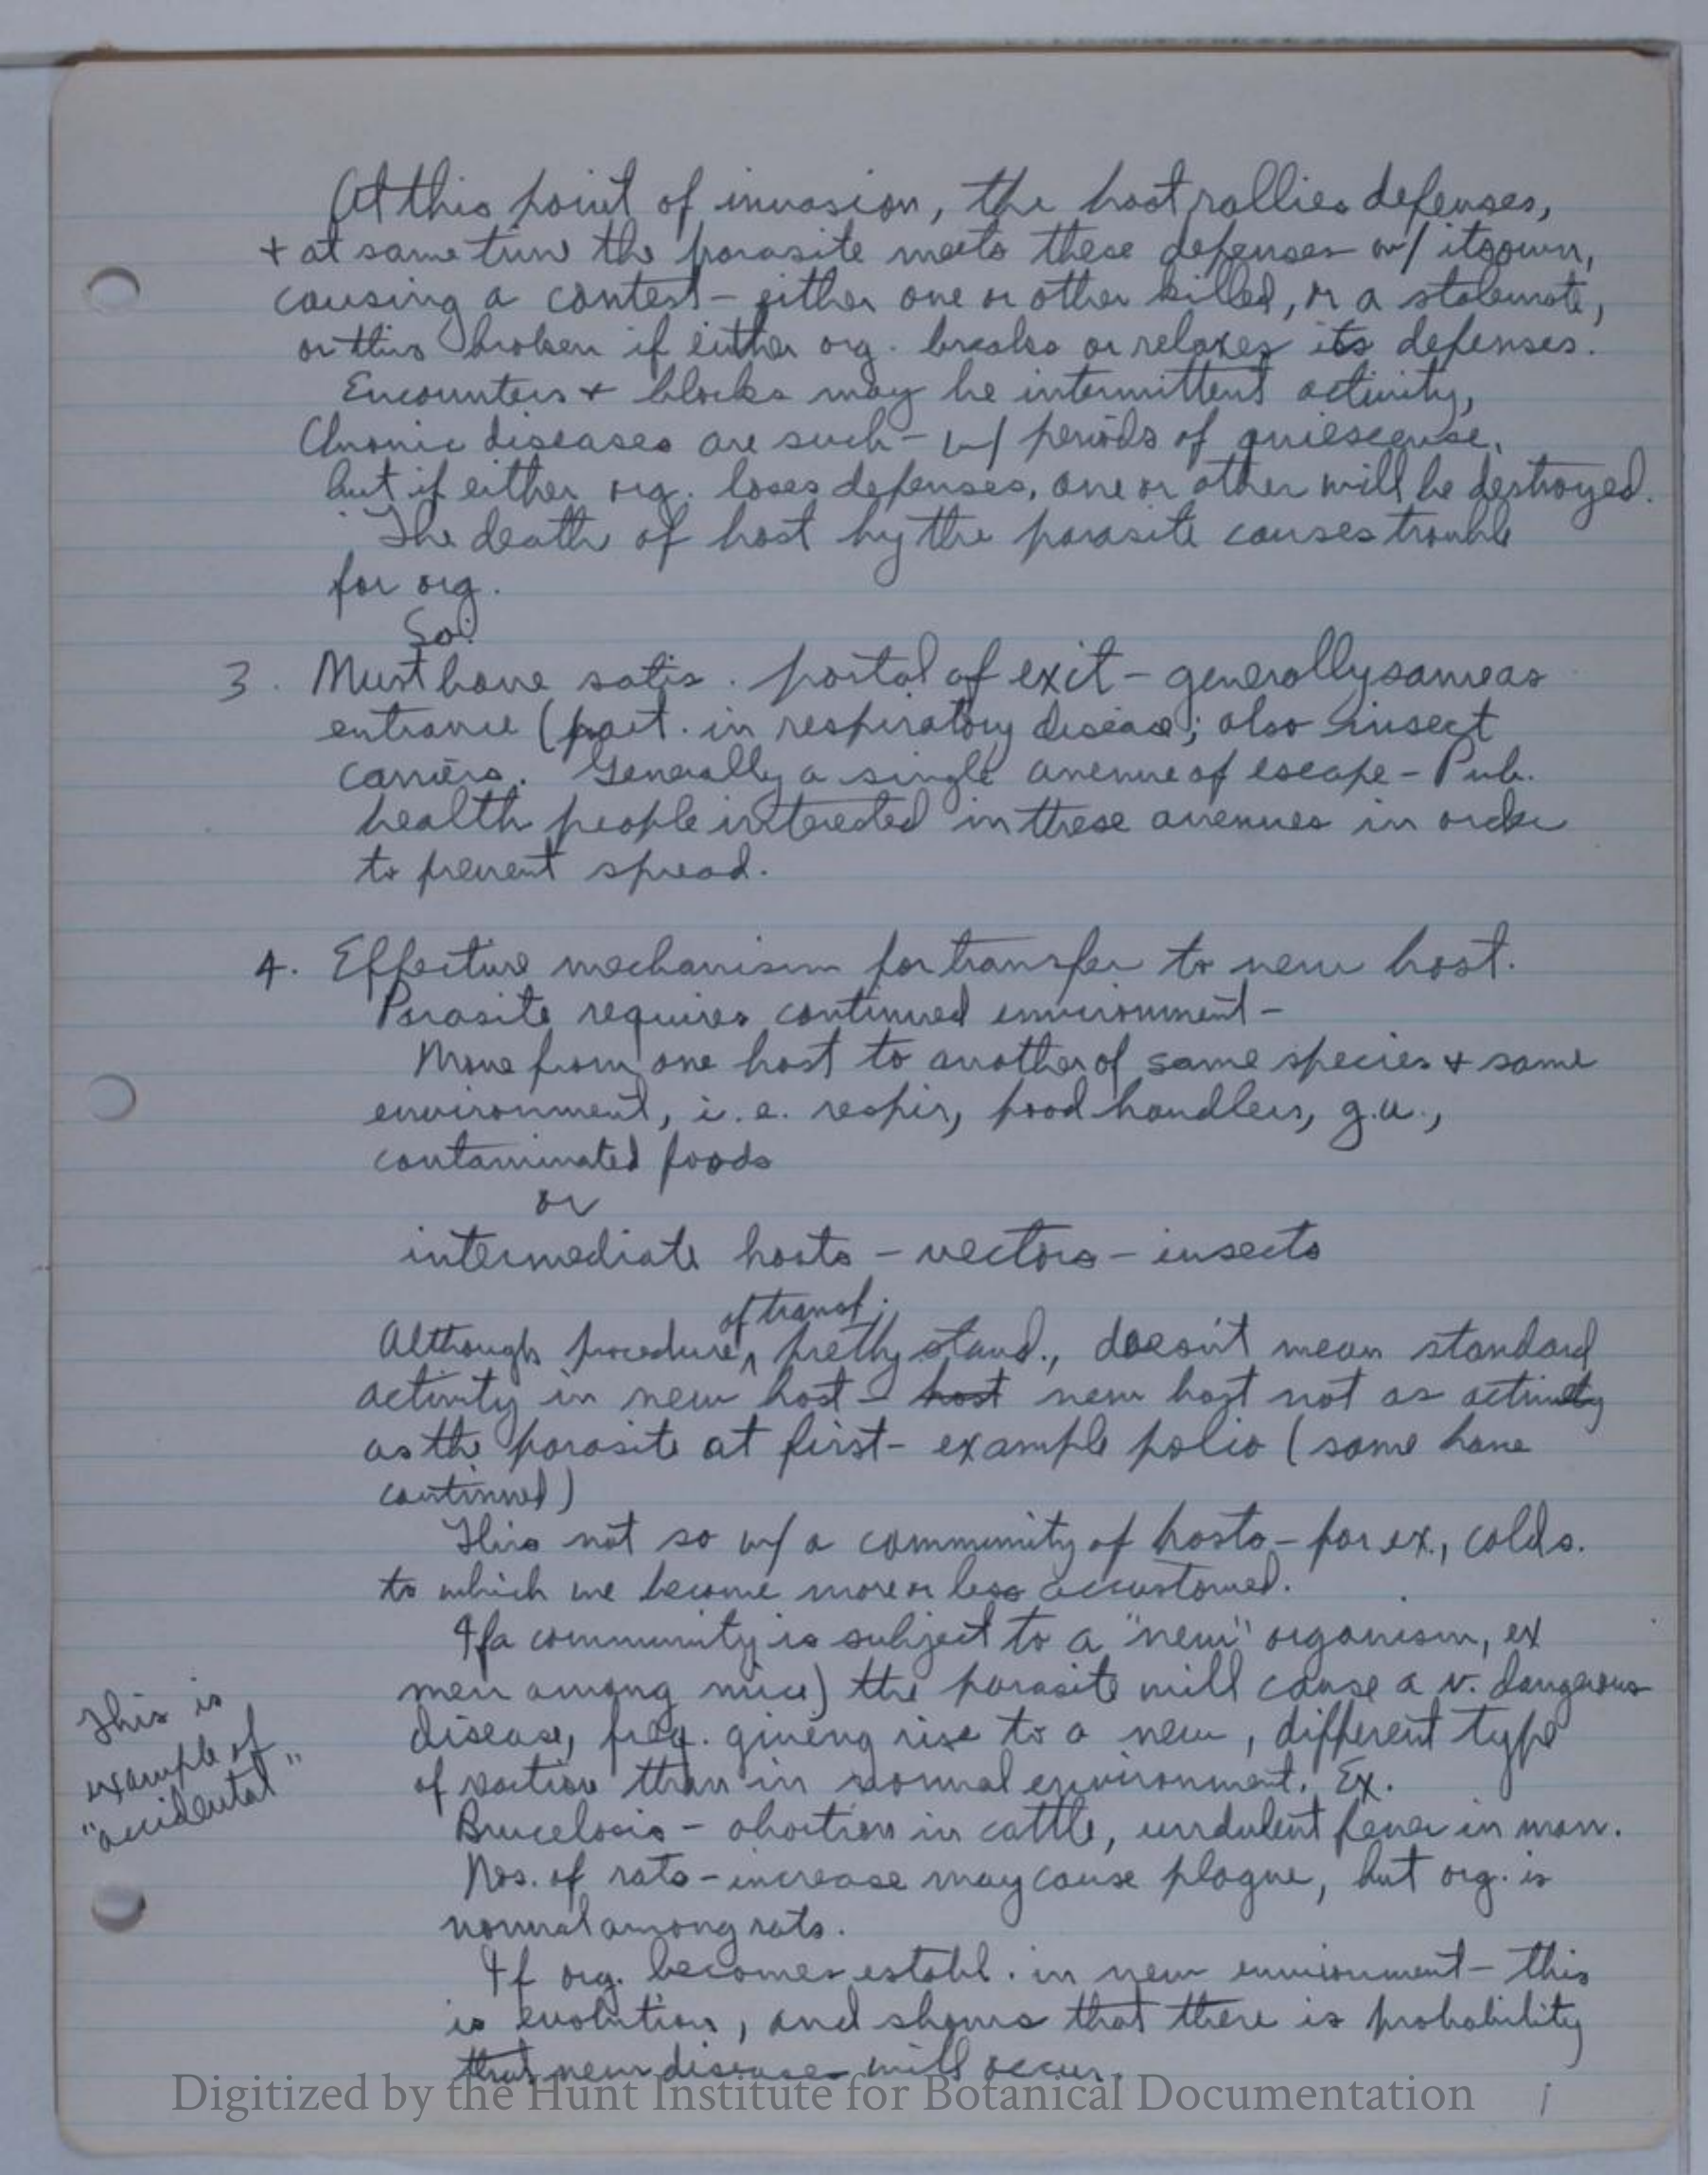 At this point of invasion, the host rallies defenses,
+ at same time the parasite meets these defenses w/ its own,
causing a contest - either one or other killed, or a stalemate,
or this broken if either org. breaks or relaxes its defenses.
Encounters + blocks may be intermittent activity,
Chronic diseases are such - w/ periods of quiescense,
but if either org. loses defenses, one or other will be destroyed.
The death of host by the parasite causes trouble
for org.
So:
3. Must have satis. portal of exit - generally same as
entrance (part. in respiratory disease); also insect
carriers. Generally a single avenue of escape - Pub.
health people interested in these avenues in order
to prevent spread.
4. Effective mechanism for transfer to new host.
Parasite requires continued environment -
Move from one host to another of same species + same
environment, i.e. respir, food handlers, g.u.,
contaminated foods
or
intermediate hosts - vectors - insects
of transf.
Although procedure ^ pretty stand., doesn't mean standard
activity in new host - host new host not as activity
as the parasite at first - example polio (some have
continued)
This not so w/ a community of hosts - for ex., colds.
to which we become more or less accustomed.
If a community is subject to a "new" organism, ex
men among mice) the parasite will cause a v. dangerous
disease, freq. giving rise to a new, different type
of reaction than in normal environment. Ex.
This is
example of
"accidental"
Brucelosis - abortion in cattle, undulent fever in man.
Nos. of rats - increase may cause plague, but org. is
normal among rats.
If org. becomes establ. in new environment - this
is evolution, and shows that there is probability
that new diseases will occur.
Digitized by the Hunt Institute for Botanical Documentation
1